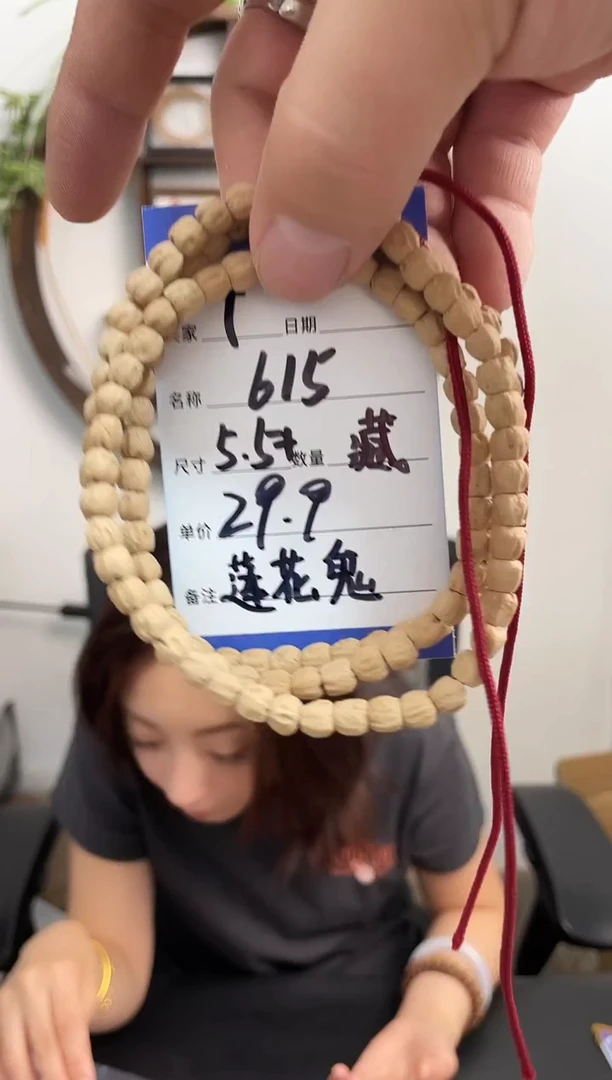 家 日期
名称 615
尺寸 5.5+ 数量 藏
单价 29.9
备注 莲花鬼